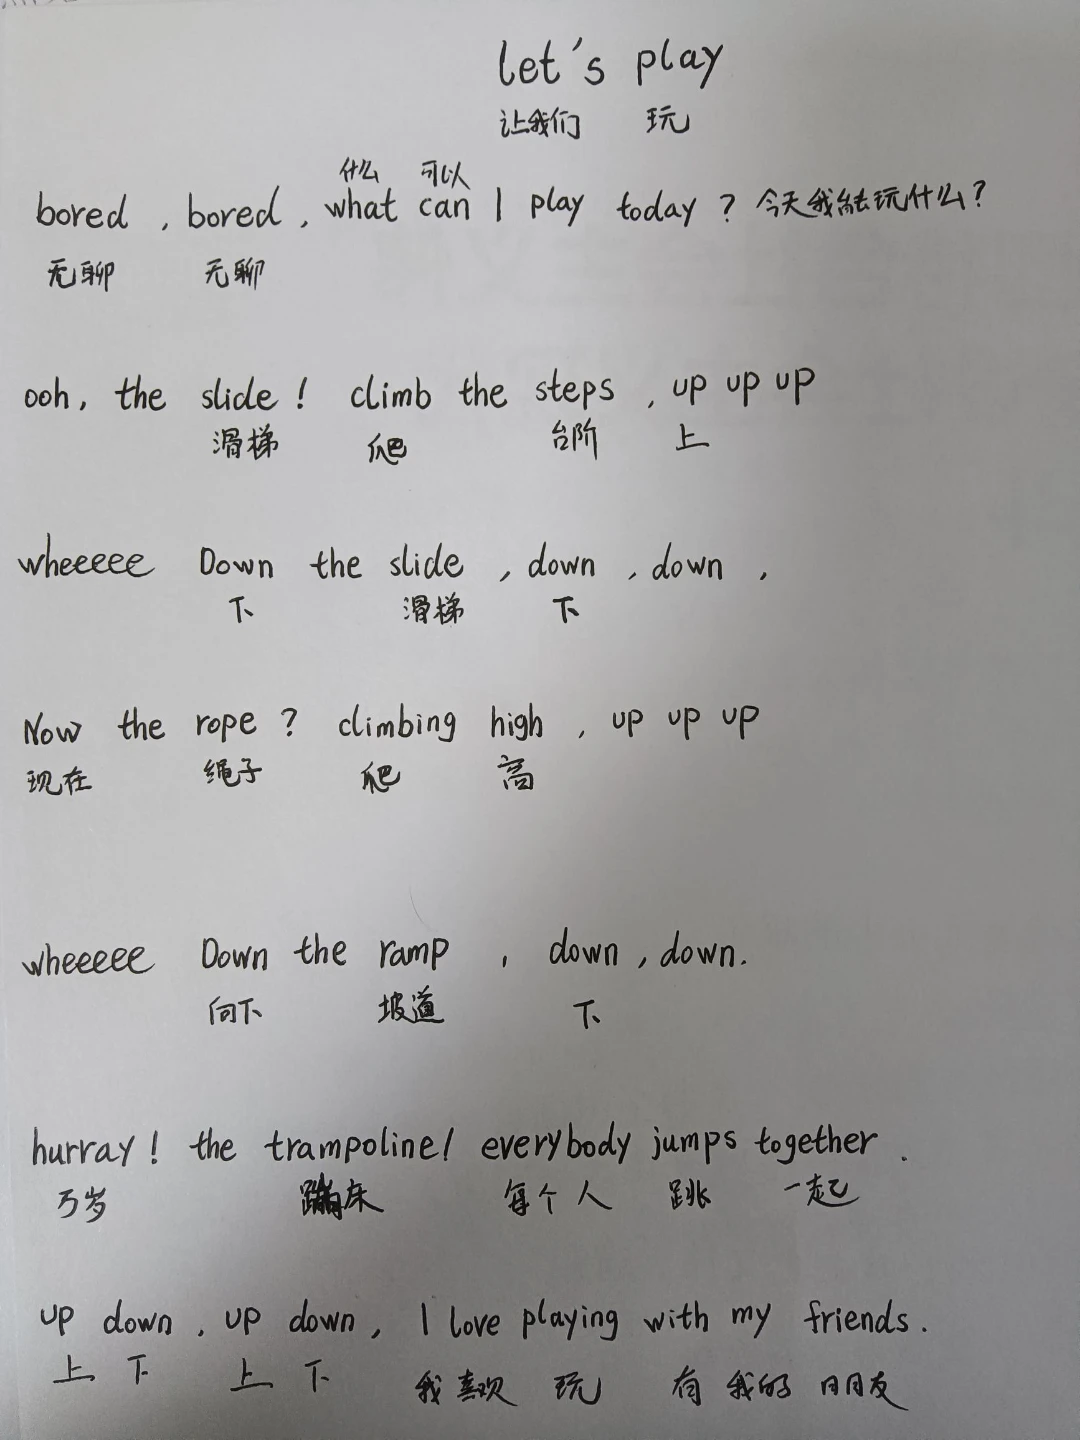 let's play
让我们 玩
什么 可以
bored , bored , what can I play today ? 今天我能玩什么?
无聊 无聊
ooh, the slide ! climb the steps , up up up
滑梯 爬 台阶 上
wheeeee Down the slide , down , down ,
下 滑梯 下
Now the rope ? climbing high , up up up
现在 绳子 爬 高
wheeeee Down the ramp , down , down.
向下 坡道 下
hurray ! the trampoline! everybody jumps together .
万岁 蹦床 每个人 跳 一起
up down , up down , I love playing with my friends .
上 下 上 下 我喜欢 玩 有 我的 朋友